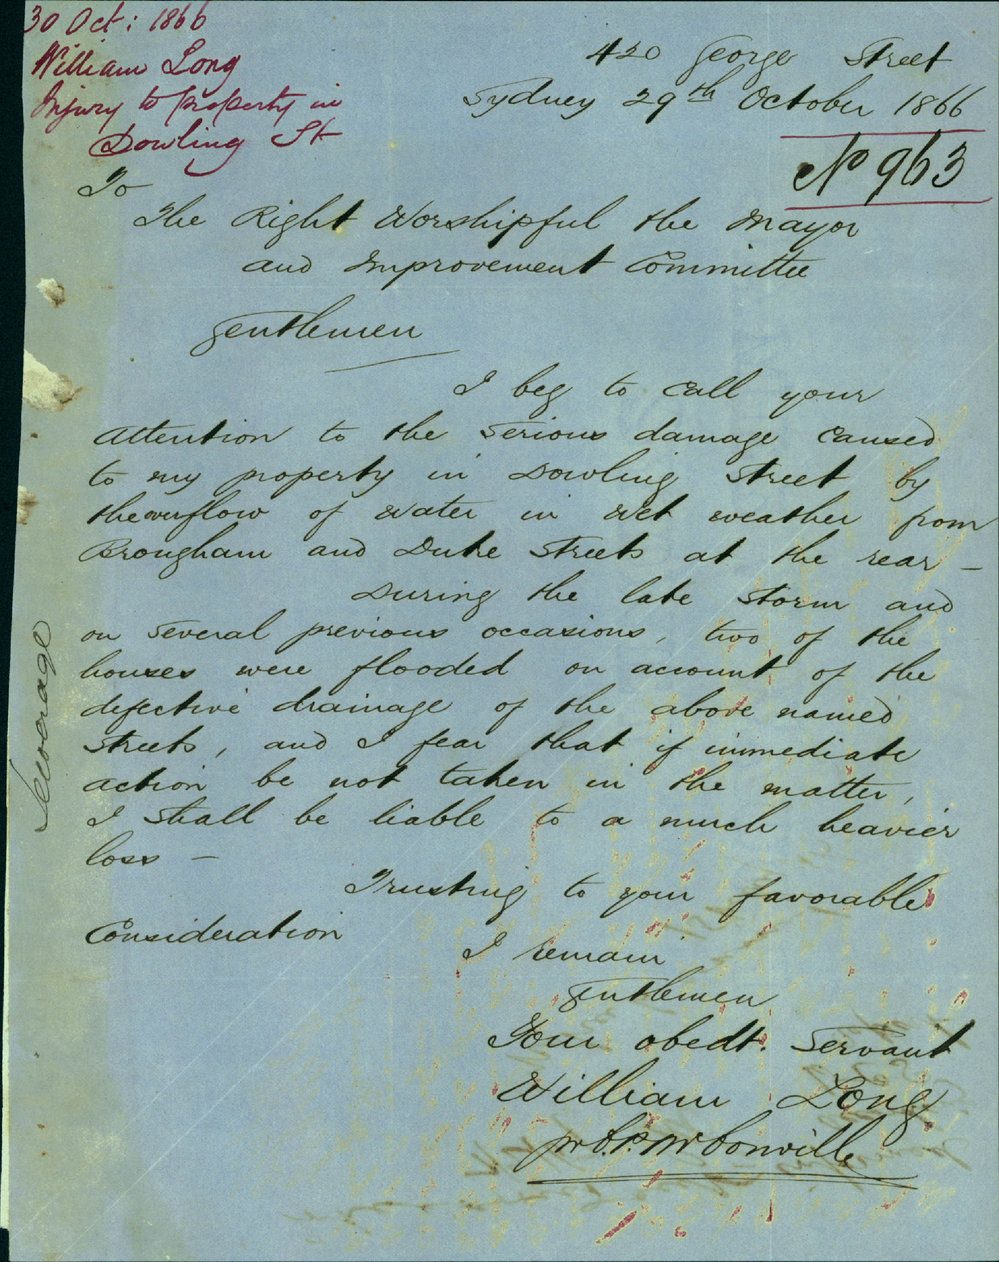 30 Oct: 1866
William Long
Injury to property in
Dowling St
420 George Street
Sydney 29th October 1866
No 963
To
The Right Worshipful the Mayor
and Improvement Committee
Gentlemen
I beg to call your
attention to the serious damage caused
to my property in Dowling Street by
the overflow of water in wet weather from
Brougham and Duke Streets at the rear —
During the late storm and
on several previous occasions, two of the
houses were flooded on account of the
defective drainage of the above named
streets, and I fear that if immediate
action be not taken in the matter,
I shall be liable to a much heavier
loss —
Trusting to your favorable
Consideration
I remain
Gentlemen
Your obedt. Servant
William Long
Sewerage